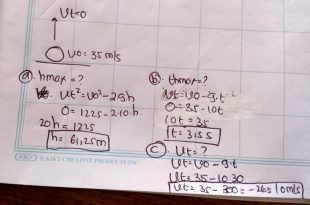 Vt=0
V0 = 35 m/s
a. hmax = ?
Vt² = V0² - 2gh
0 = 1225 - 2·10·h
20h = 1225
h = 61,25m
b. tmax = ?
Vt = V0 - g.t
0 = 35 - 10t
10t = 35
t = 3,5 s
c Vt = ?
Vt = V0 - g.t
Vt = 35 - 10.30
Vt = 35 - 300 = -265
m/s
KIKY
© KIKY CREATIVE PRODUCTS INC.